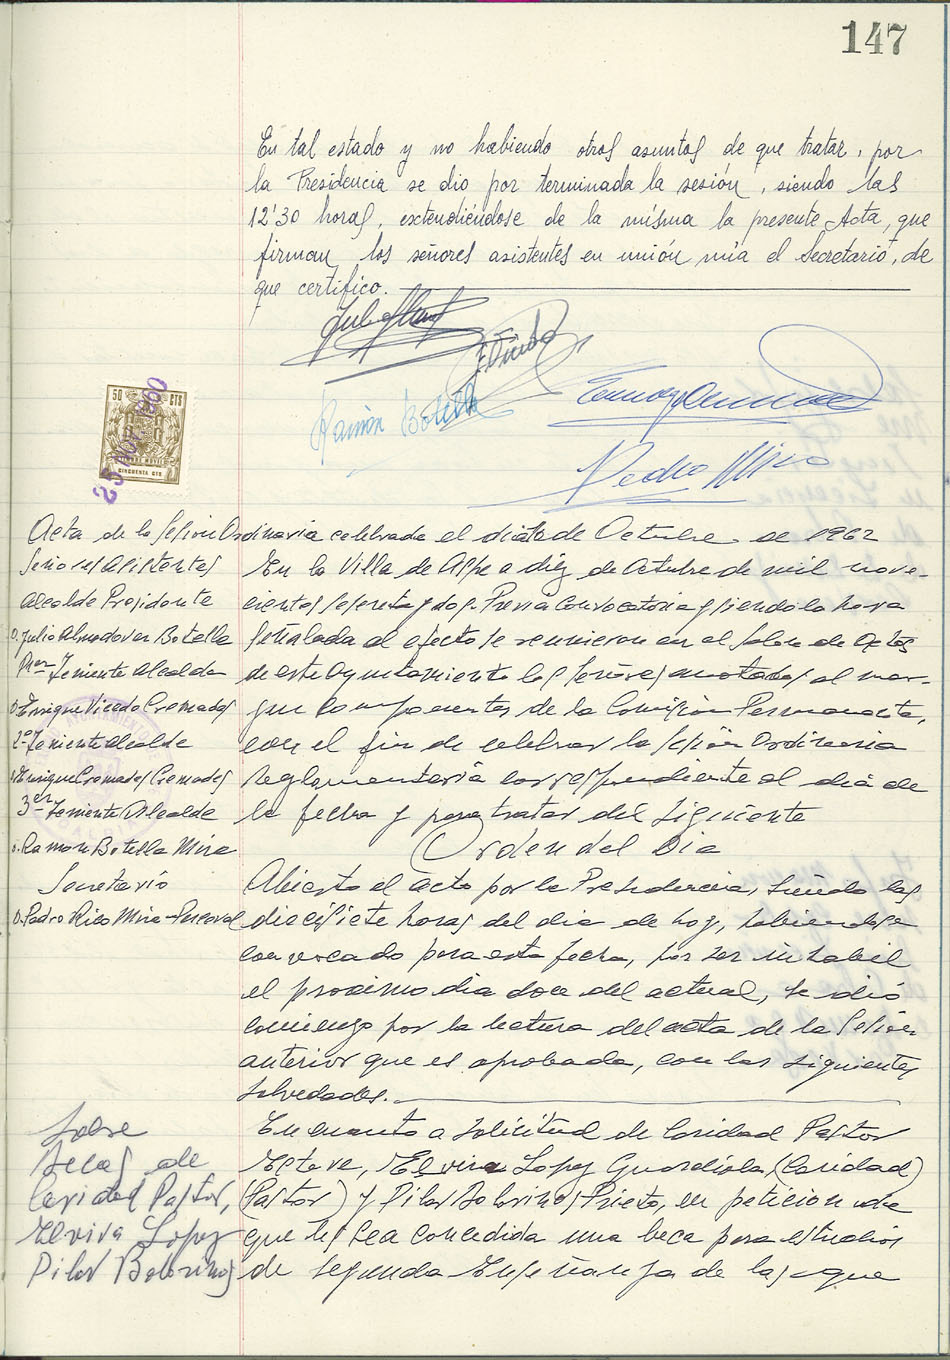 147
En tal estado y no habiendo otros asuntos de que tratar, por
la Presidencia se dio por terminada la sesión, siendo las
12'30 horas, extendiéndose de la misma la presente Acta, que
firman los señores asistentes en unión mía el Secretario, de
que certifico.
Ramón Botella
Pedro
50 CTS
CINCUENTA CTS
Acta de la Sesion Ordinaria celebrada el de Octubre de 1962
Señores Asistentes
Alcalde Presidente
D. Julio Almodovar Botella
Teniente Alcalde
D. Enrique Vicedo Cremades
2º Teniente Alcalde
D. Enrique Cremades Cremades
3er Teniente Alcalde
D. Ramon Botella Mira
Secretario
D. Pedro Rico Mira-Perceval
En la Villa de Aspe a diez de Octubre de mil nove-
cientos sesenta y dos. Previa Convocatoria y siendo la hora
señalada al efecto se reunieron en el Salon de Actos
de este Ayuntamiento los Señores anotados al mar-
gen Componentes de la Comision Permanente,
con el fin de celebrar la Sesion Ordinaria
Reglamentaria correspondiente al dia de
la fecha y para tratar del siguiente
Orden del Dia
Abierto el acto por la Presidencia, siendo las
diecisiete horas del dia de hoy, habiendose
convocado para esta fecha, por ser inhabil
el proximo dia doce del actual, se dió
comienzo por la lectura del acta de la Sesion
anterior que es aprobada, con las siguientes
salvedades.
Sobre
Becas de
Caridad Pastor,
Elvira Lopez
Pilar Boloriños
En cuanto a solicitud de Caridad Pastor
Esteve, Elvira Lopez Guardiola, (Caridad)
(Pastor) y Pilar Boloriños Prieto, en peticion de
que les sea concedida una beca para estudios
de Segunda Enseñanza de las que